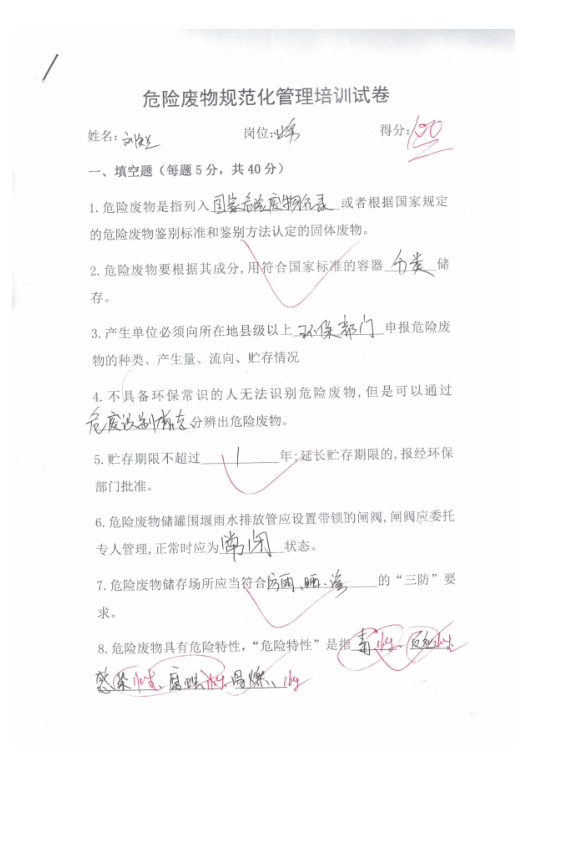 危险废物规范化管理培训试卷
姓名: 岗位: 得分: 100
一、填空题（每题5分，共40分）
1.危险废物是指列入国家危险废物名录或者根据国家规定
的危险废物鉴别标准和鉴别方法认定的固体废物。
2.危险废物要根据其成分,用符合国家标准的容器分类储
存。
3.产生单位必须向所在地县级以上环保部门申报危险废
物的种类、产生量、流向、贮存情况
4.不具备环保常识的人无法识别危险废物,但是可以通过
危废识别标志分辨出危险废物。
5.贮存期限不超过1年;延长贮存期限的,报经环保
部门批准。
6.危险废物储罐围堰雨水排放管应设置带锁的闸阀,闸阀应委托
专人管理,正常时应为常闭状态。
7.危险废物储存场所应当符合防雨、晒、渗的“三防”要
求。
8.危险废物具有危险特性，“危险特性”是指毒性、反应性、
感染性、腐蚀性、易燃、性